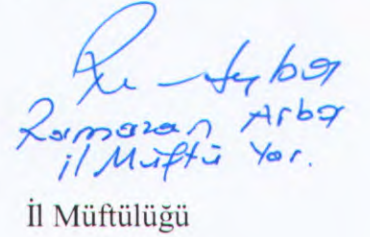 Ramazan Arba
il Müftü Yar.
İl Müftülüğü